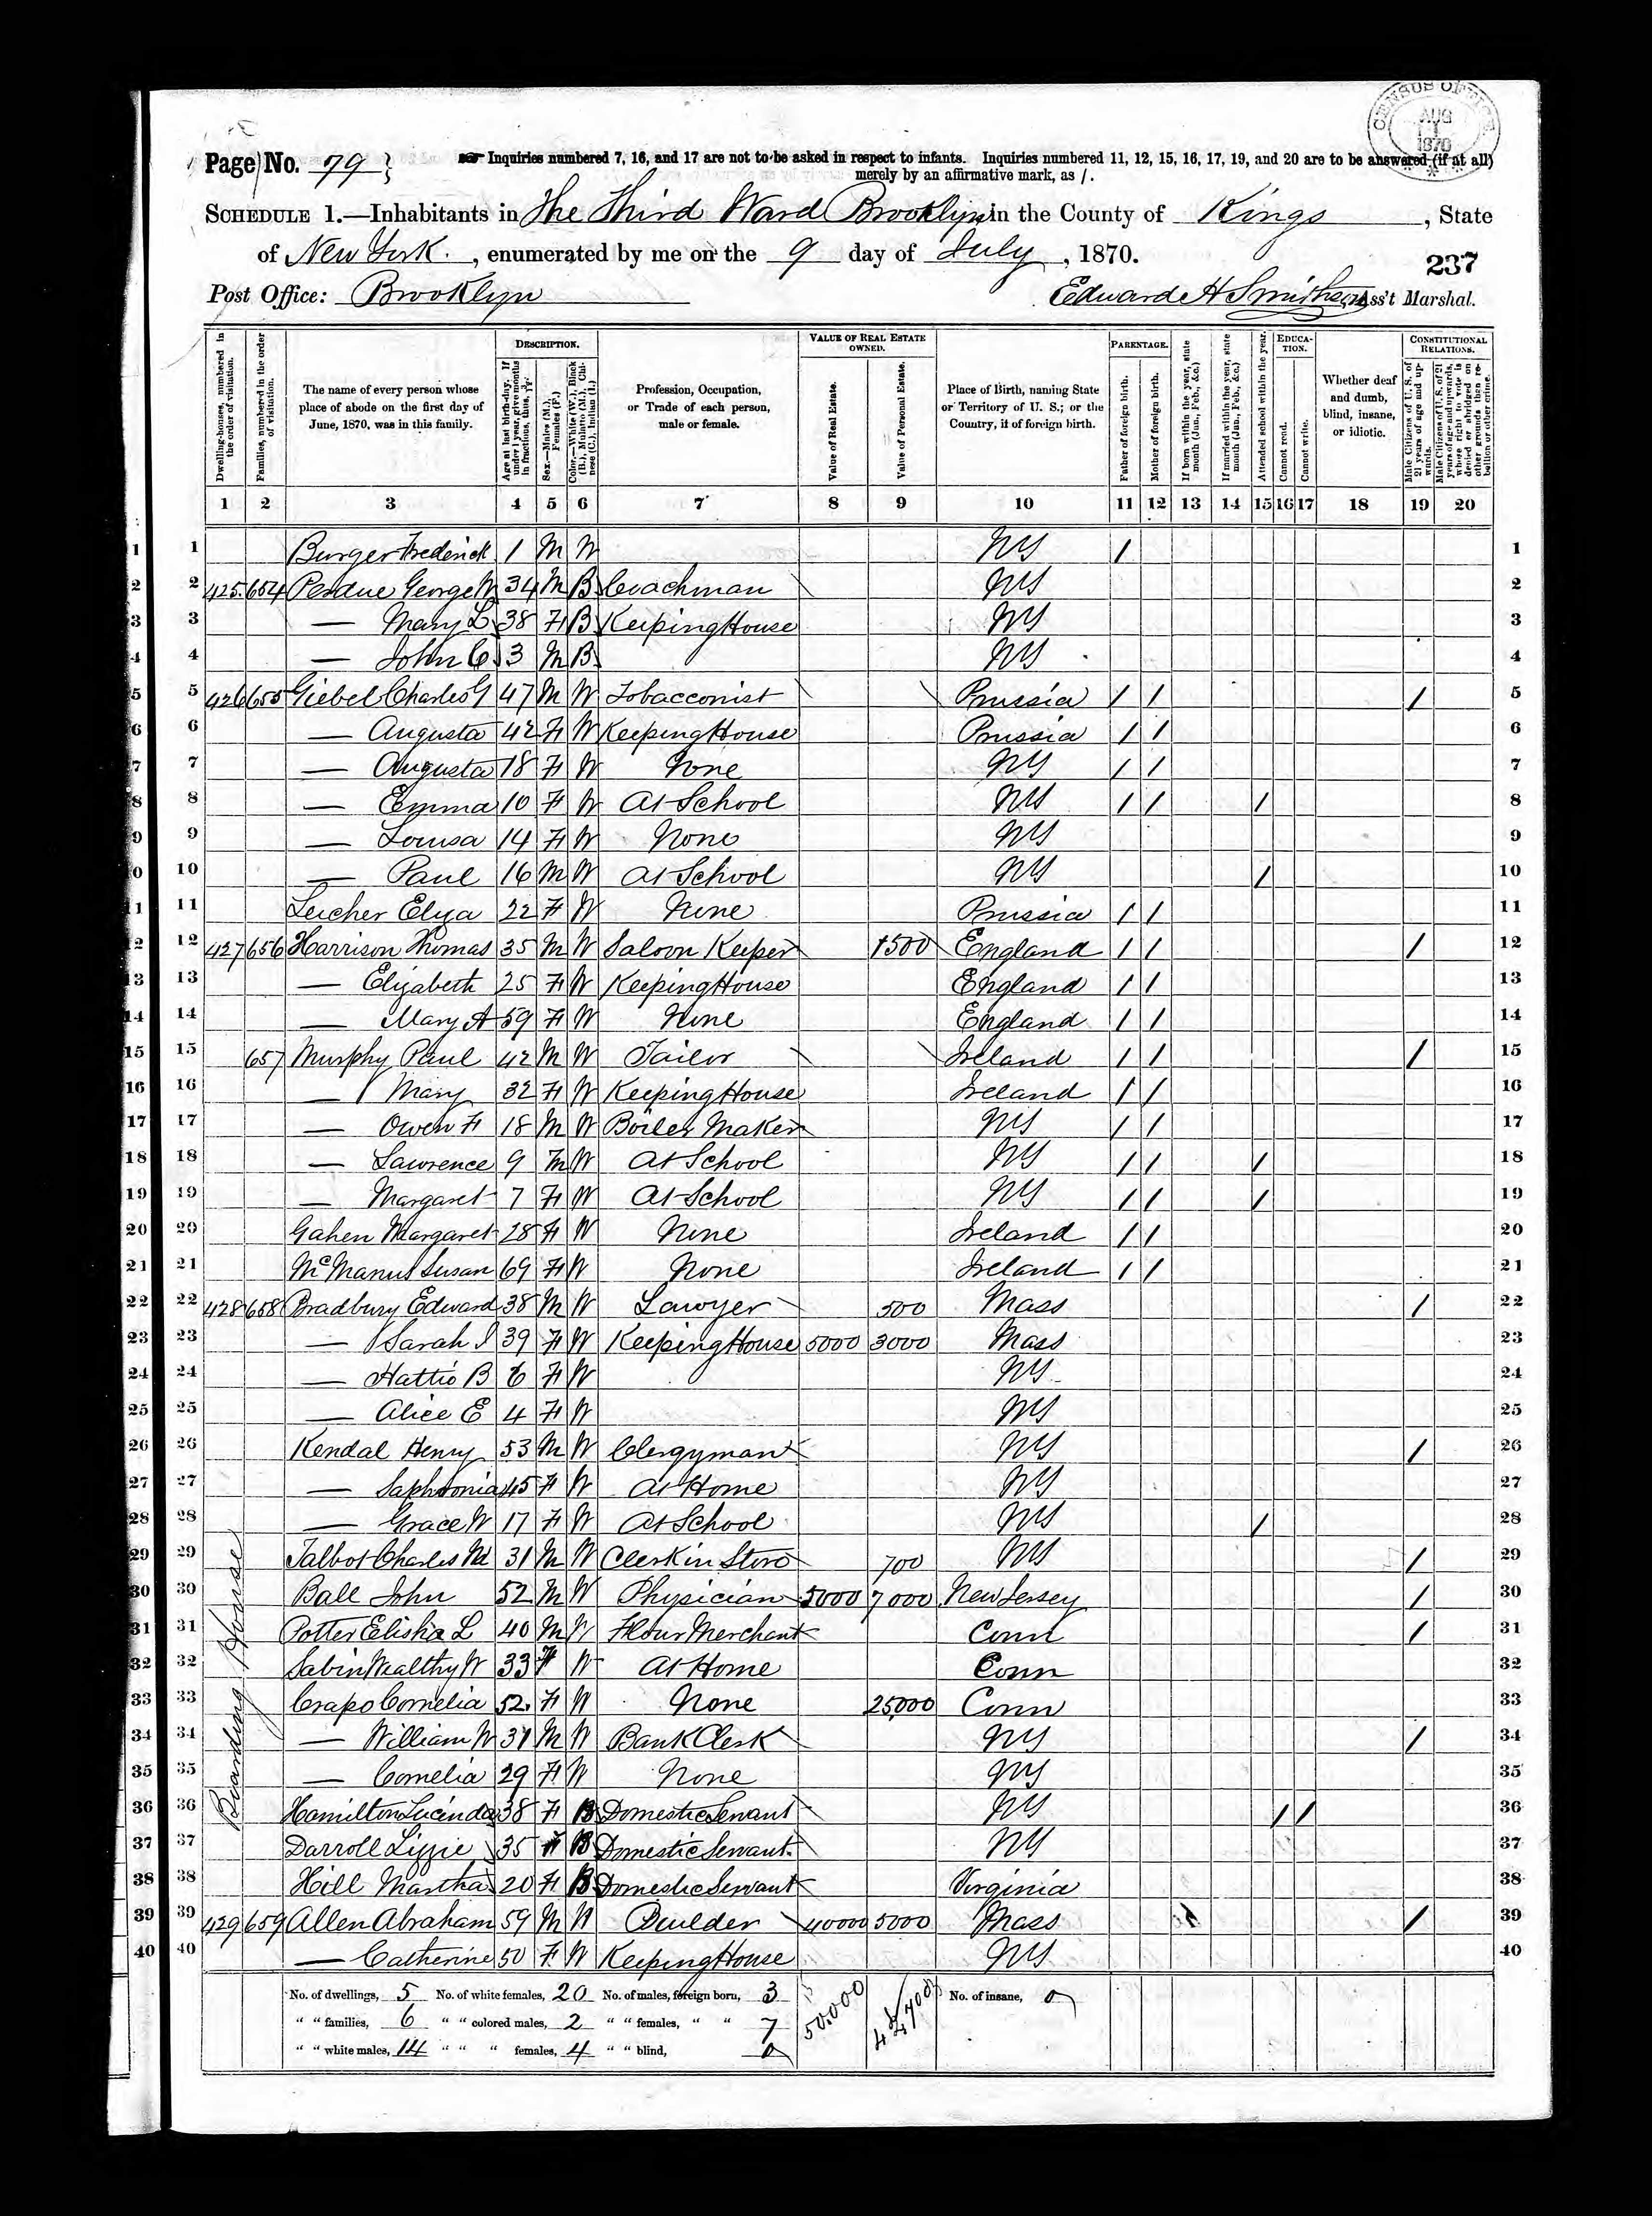 CENSUS OFFICE AUG 1 1870
Page No. 79
Inquiries numbered 7, 16, and 17 are not to be asked in respect to infants. Inquiries numbered 11, 12, 15, 16, 17, 19, and 20 are to be answered (if at all)
merely by an affirmative mark, as /.
SCHEDULE 1.—Inhabitants in The Third Ward Brooklyn in the County of Kings, State
of New York., enumerated by me on the 9 day of July, 1870.
237
Post Office: Brooklyn Edward H Smith Ass't Marshal.
Dwelling-houses, numbered in the order of visitation.
Families, numbered in the order of visitation.
The name of every person whose place of abode on the first day of June, 1870, was in this family.
DESCRIPTION.
Age at last birth-day. If under 1 year, give months in fractions, thus, 3/12.
Sex.—Males (M.), Females (F.)
Color.—White (W.), Black (B.), Mulatto (M.), Chinese (C.), Indian (I.)
Profession, Occupation, or Trade of each person, male or female.
VALUE OF REAL ESTATE OWNED.
Value of Real Estate.
Value of Personal Estate.
Place of Birth, naming State or Territory of U. S.; or the Country, if of foreign birth.
PARENTAGE.
Father of foreign birth.
Mother of foreign birth.
If born within the year, state month (Jan., Feb., &c.)
If married within the year, state month (Jan., Feb., &c.)
Attended school within the year.
EDUCATION.
Cannot read.
Cannot write.
Whether deaf and dumb, blind, insane, or idiotic.
CONSTITUTIONAL RELATIONS.
Male Citizens of U. S. of 21 years of age and upwards.
Male Citizens of U. S. of 21 years of age and upwards, whose right to vote is denied or abridged on other grounds than rebellion or other crime.
1 2 3 4 5 6 7 8 9 10 11 12 13 14 15 16 17 18 19 20
1 Burger Frederick 1 M W NY / 1
2 425 654 Perdue George W 34 M B Coachman NY 2
3 — Mary L 38 F B Keeping House NY 3
4 — John C 3 M B NY 4
5 426 655 Giebel Charles G 47 M W Tobacconist Prussia / / / 5
6 — Augusta 42 F W Keeping House Prussia / / 6
7 — Augusta 18 F W None NY / / 7
8 — Emma 10 F W At School NY / / / 8
9 — Louisa 14 F W None NY 9
10 — Paul 16 M W At School NY / 10
11 Leicher Eliza 22 F W None Prussia / / 11
12 427 656 Harrison Thomas 35 M W Saloon Keeper 1500 England / / / 12
13 — Elizabeth 25 F W Keeping House England / / 13
14 — Mary A 59 F W None England / / 14
15 657 Murphy Paul 42 M W Tailor Ireland / / / 15
16 — Mary 32 F W Keeping House Ireland / / 16
17 — Owen F 18 M W Boiler Maker NY / / 17
18 — Lawrence 9 M W At School NY / / / 18
19 — Margaret 7 F W At School NY / / / 19
20 Gahen Margaret 28 F W None Ireland / / 20
21 McManus Susan 69 F W None Ireland / / 21
22 428 658 Bradbury Edward 38 M W Lawyer 500 Mass / 22
23 — Sarah J 39 F W Keeping House 5000 3000 Mass 23
24 — Hattie B 6 F W NY 24
25 — Alice E 4 F W NY 25
26 Kendal Henry 53 M W Clergyman NY / 26
27 — Saphronia 45 F W At Home NY 27
28 — Grace W 17 F W At School NY / 28
29 Talbot Charles M 31 M W Clerk in Store 700 NY / 29
30 Ball John 52 M W Physician 5000 7000 New Jersey / 30
31 Potter Elisha L 40 M W Flour Merchant Conn / 31
32 Sabin Wealthy W 33 F W At Home Conn 32
33 Crapo Cornelia 52 F W None 25000 Conn 33
34 — William W 31 M W Bank Clerk NY / 34
35 — Cornelia 29 F W None NY 35
36 Hamilton Lucinda 38 F B Domestic Servant NY / / 36
37 Darroll Lizzie 35 F B Domestic Servant NY 37
38 Hill Martha 20 F B Domestic Servant Virginia 38
39 429 659 Allen Abraham 59 M W Builder 40000 5000 Mass / 39
40 — Catherine 50 F W Keeping House NY 40
Boarding House
No. of dwellings, 5 No. of white females, 20 No. of males, foreign born, 3 50,000 No. of insane, 0
" " families, 6 " " colored males, 2 " " females, " " 7
" " white males, 14 " " " females, 4 " " blind, 0